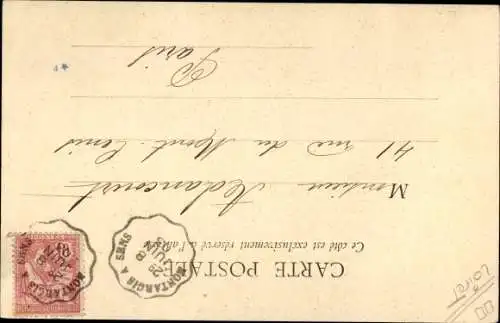 CARTE POSTALE
Ce côté est exclusivement réservé à l'adresse
Monsieur Adancourt
41 rue du Mont Cenis
Paris
MONTARGIS A SENS
JUIN
MONTARGIS A SENS
JUIN